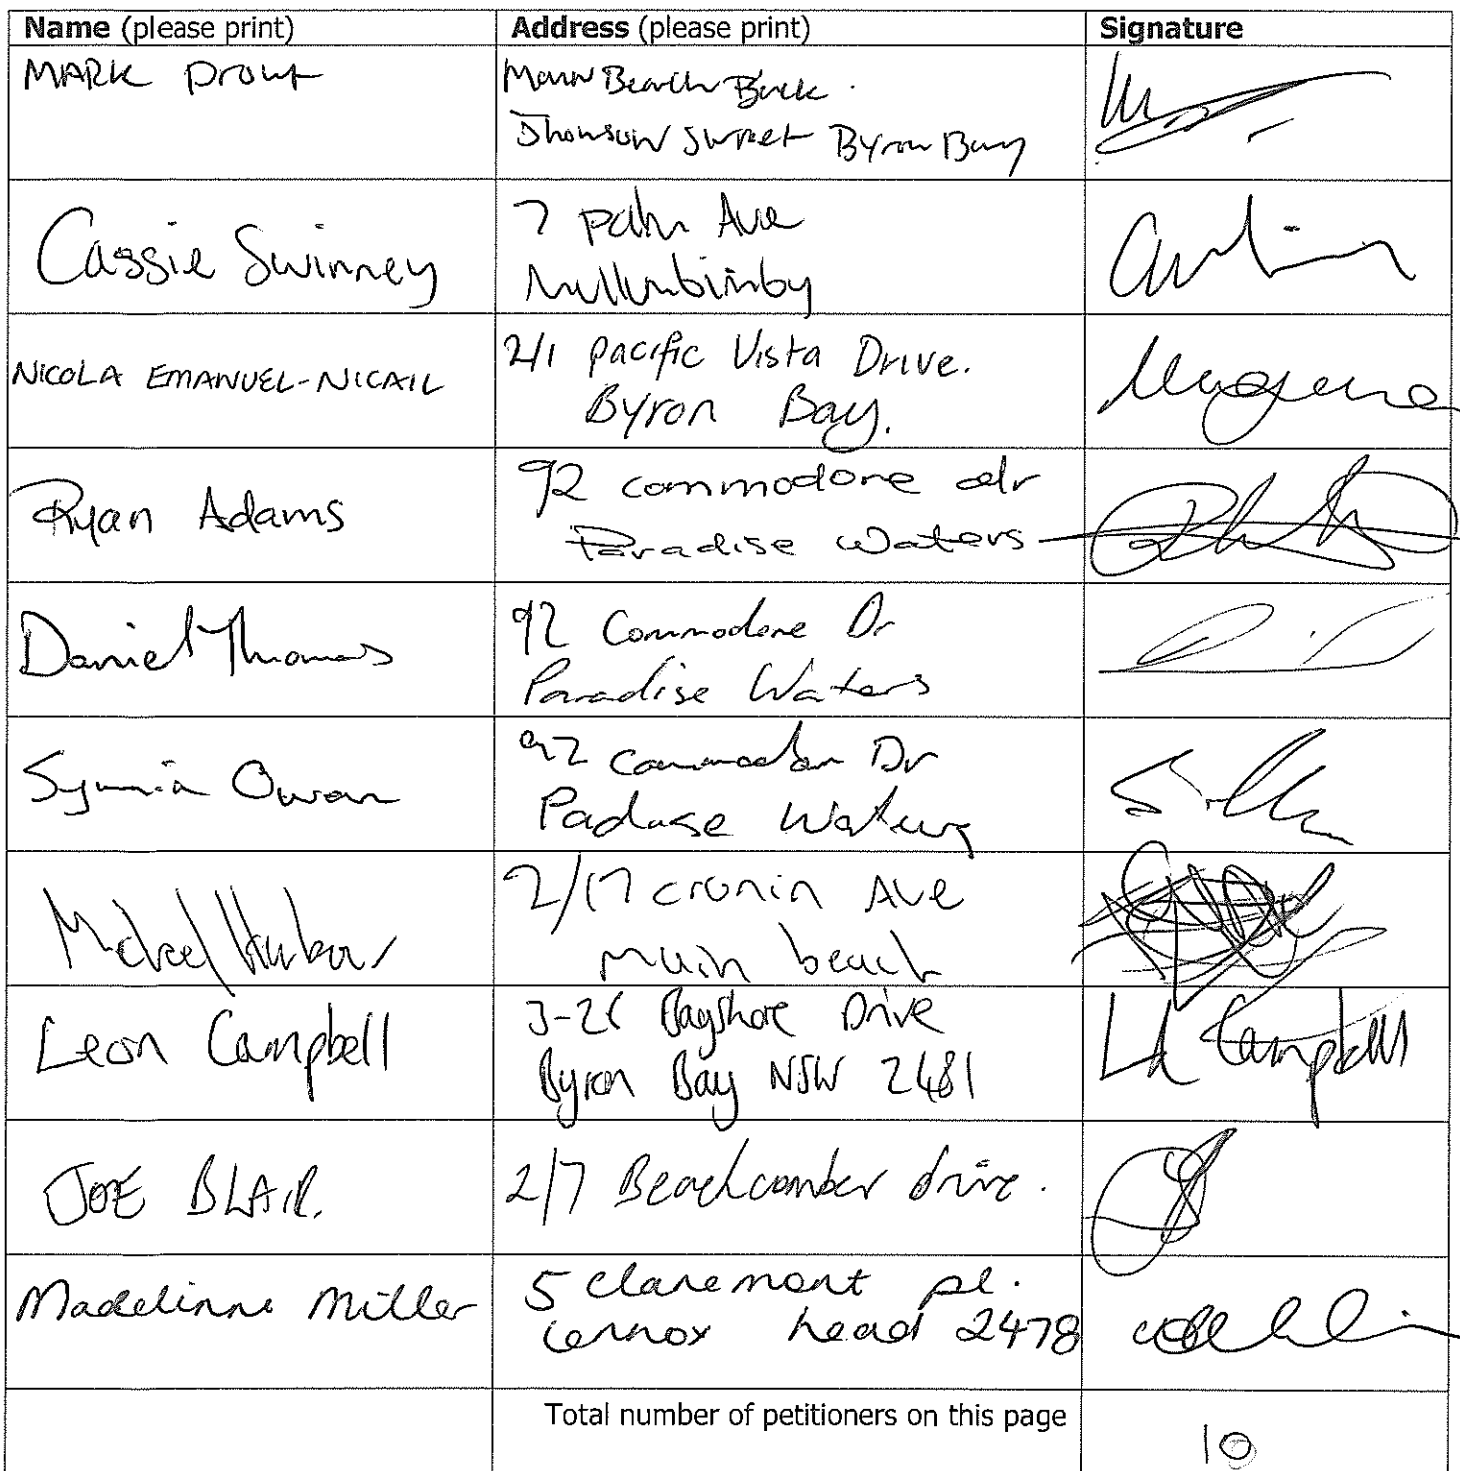 Name (please print) Address (please print) Signature
MARK Prout
Main Beach Back.
Jhonson Street Byron Bay
Cassie Swinney
7 palm Ave
Mullumbimby
NICOLA EMANUEL-NICAIL
2/1 pacific Vista Drive.
Byron Bay.
Ryan Adams
92 commodore dr
Paradise Waters
Daniel Thomas
92 Commodore Dr
Paradise Waters
Owen
92 Dr
Waters
Michael
2/17 cronin Ave
main beach
Leon Campbell
Drive
Byron Bay NSW 2481
Campbell
JOE BLAIR.
2/7 Beachcomber drive.
Madelinne Miller
5 claremont pl.
Lennox head 2478
Total number of petitioners on this page
10